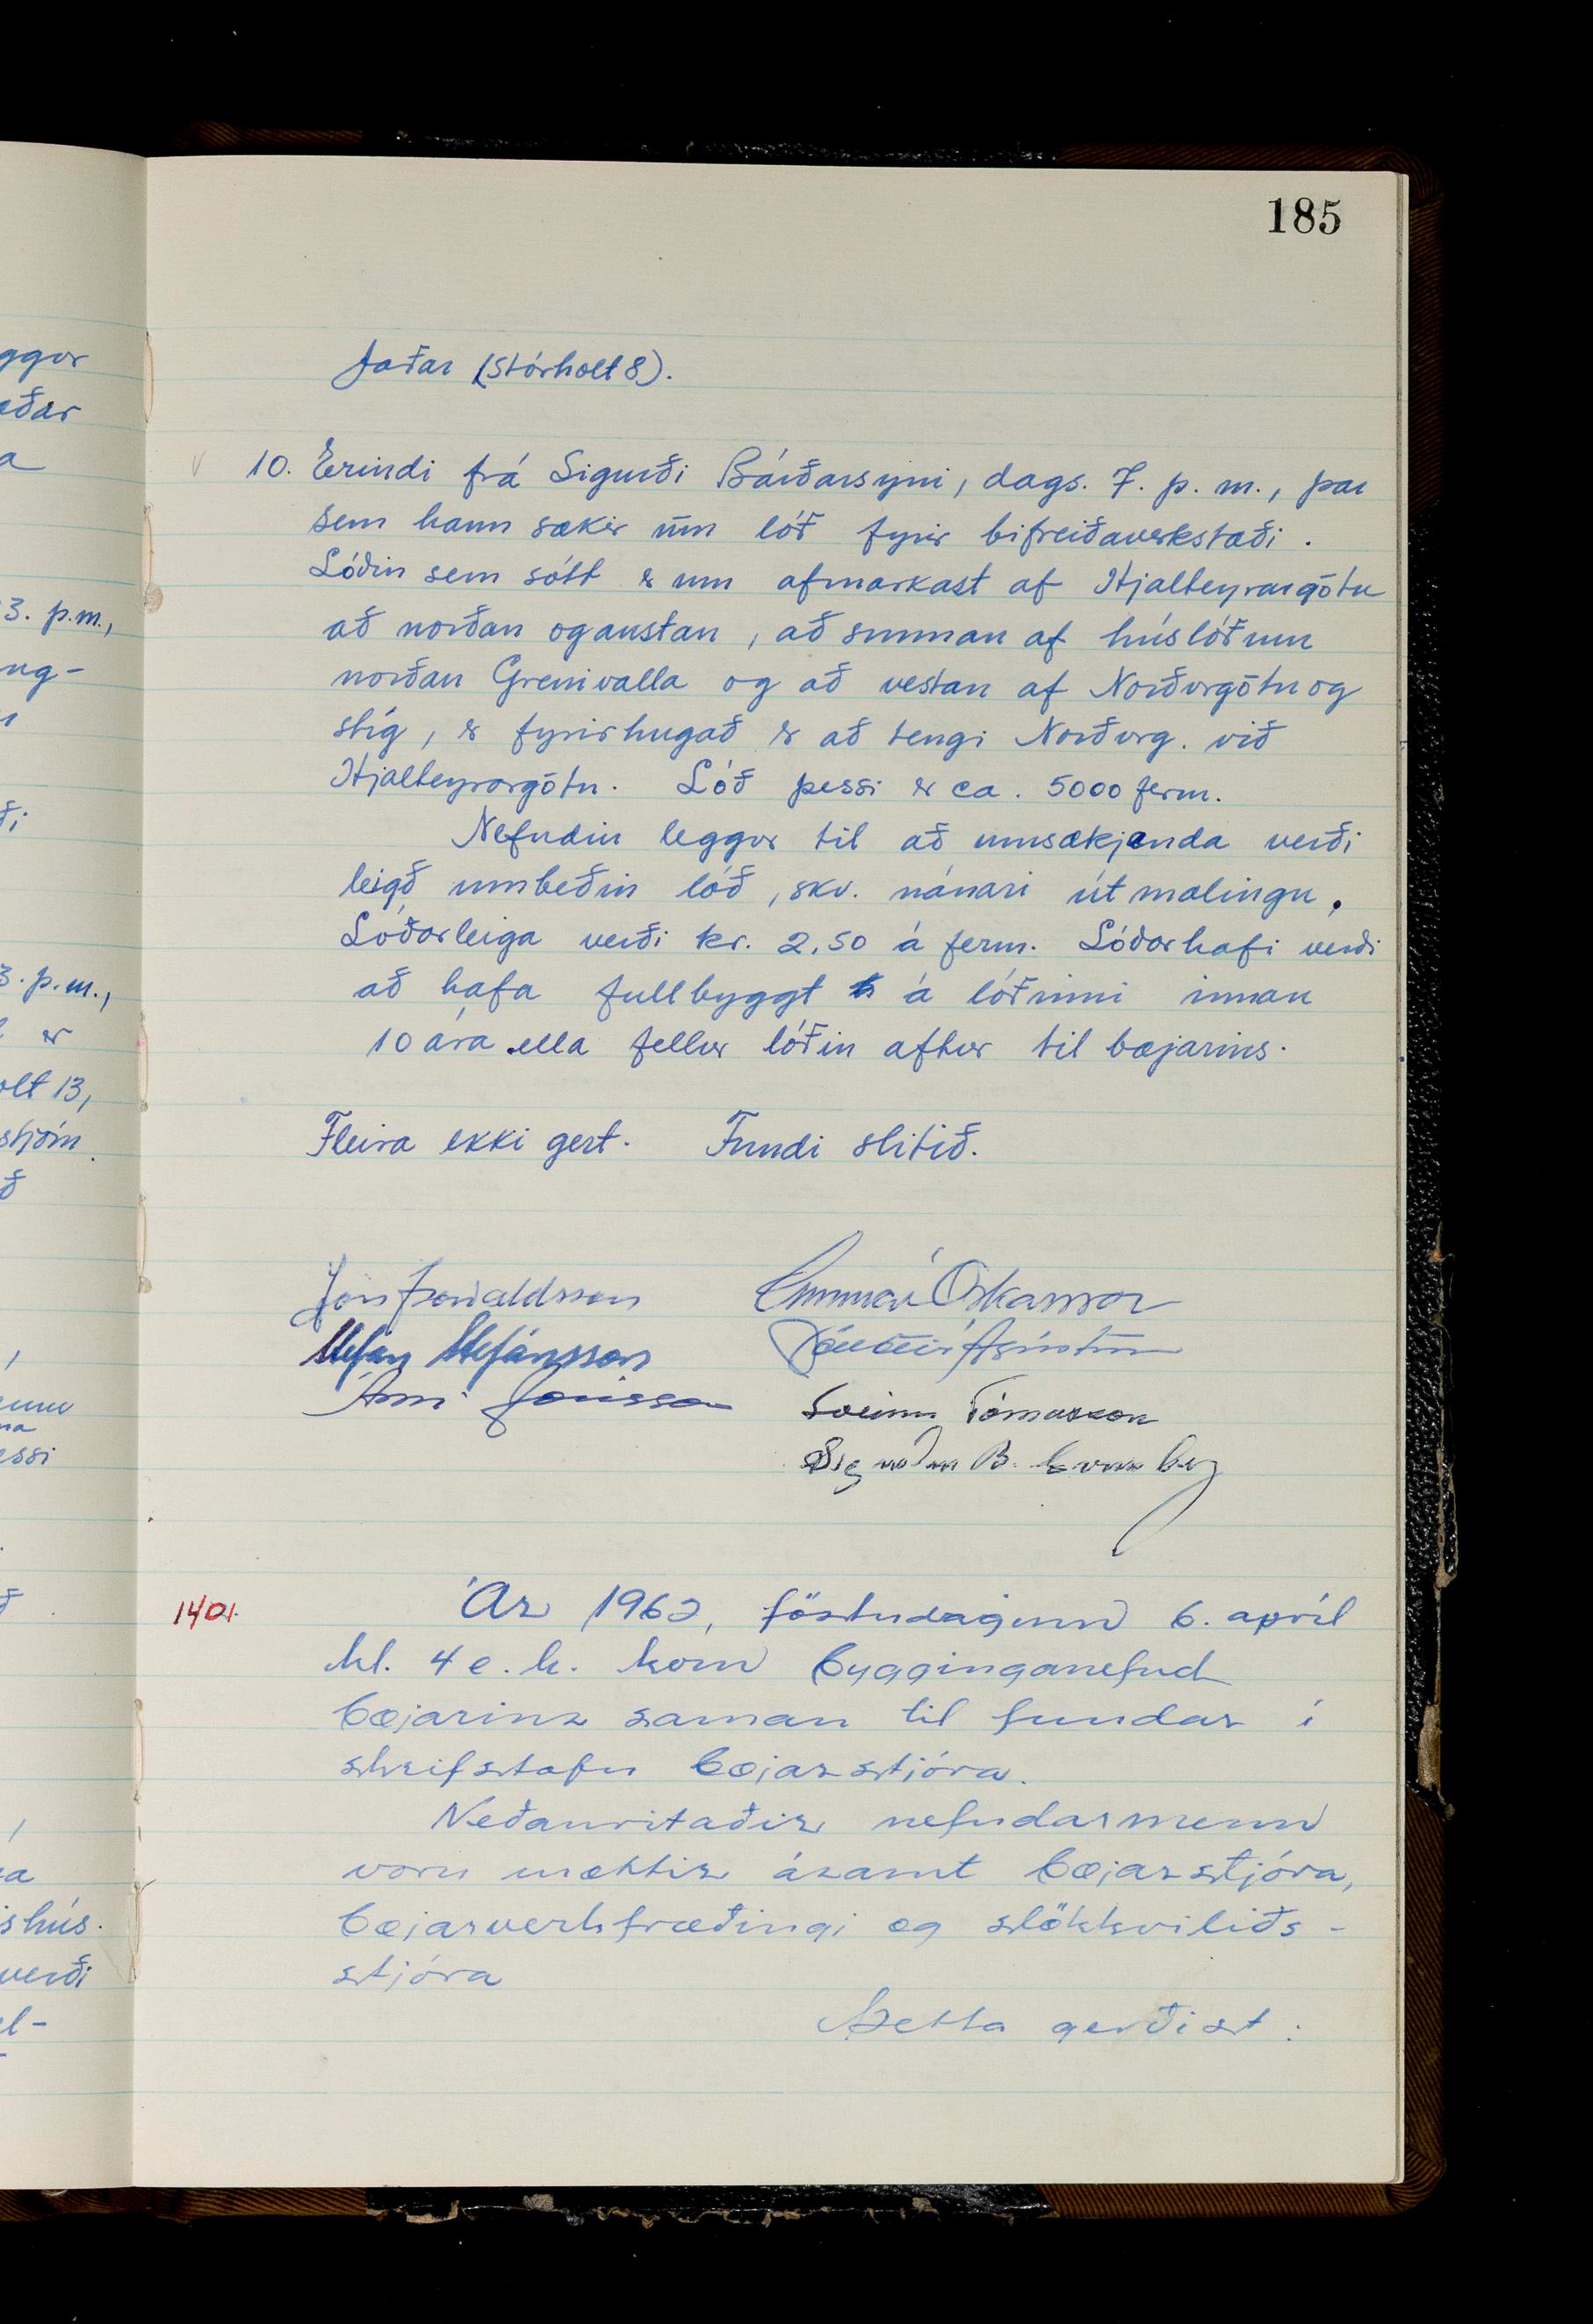 185
Jaðar (Stórholt 8).
10. Erindi frá Sigurði Bárðarsyni, dags. 7. þ. m., þar
sem hann sækir um lóð fyrir bifreiðaverkstæði.
Lóðin sem sótt er um afmarkast af Hjalteyrargötu
að norðan og austan, að sunnan af húslóðum
norðan Grenivalla og að vestan af Norðurgötu og
stíg, er fyrirhugað er að tengi Norðurg. við
Hjalteyrargötu. Lóð þessi er ca. 5000 ferm.
Nefndin leggur til að umsækjanda verði
leigð umbeðin lóð, skv. nánari útmælingu.
Lóðarleiga verði kr. 2.50 á ferm. Lóðarhafi verði
að hafa fullbyggt á lóðinni innan
10 ára ella fellur lóðin aftur til bæjarins.
Fleira ekki gert. Fundi slitið.
Jón Þorvaldsson Gunnar Óskarsson
Stefán Stefánsson
Árni Jónsson Sveinn Tómasson
B.
1401. Ár 1962, föstudaginn 6. apríl
kl. 4 e. h. kom bygginganefnd
bæjarins saman til fundar í
skrifstofu bæjarstjóra.
Neðanritaðir nefndarmenn
voru mættir ásamt bæjarstjóra,
bæjarverkfræðingi og slökkviliðs-
stjóra
Þetta gerðist:
ggur
eðar
a
3. þ.m.,
ng-
ði
3. þ.m.,
er
olt 13,
stjórn
ð
essi
ishús.
verði
el-